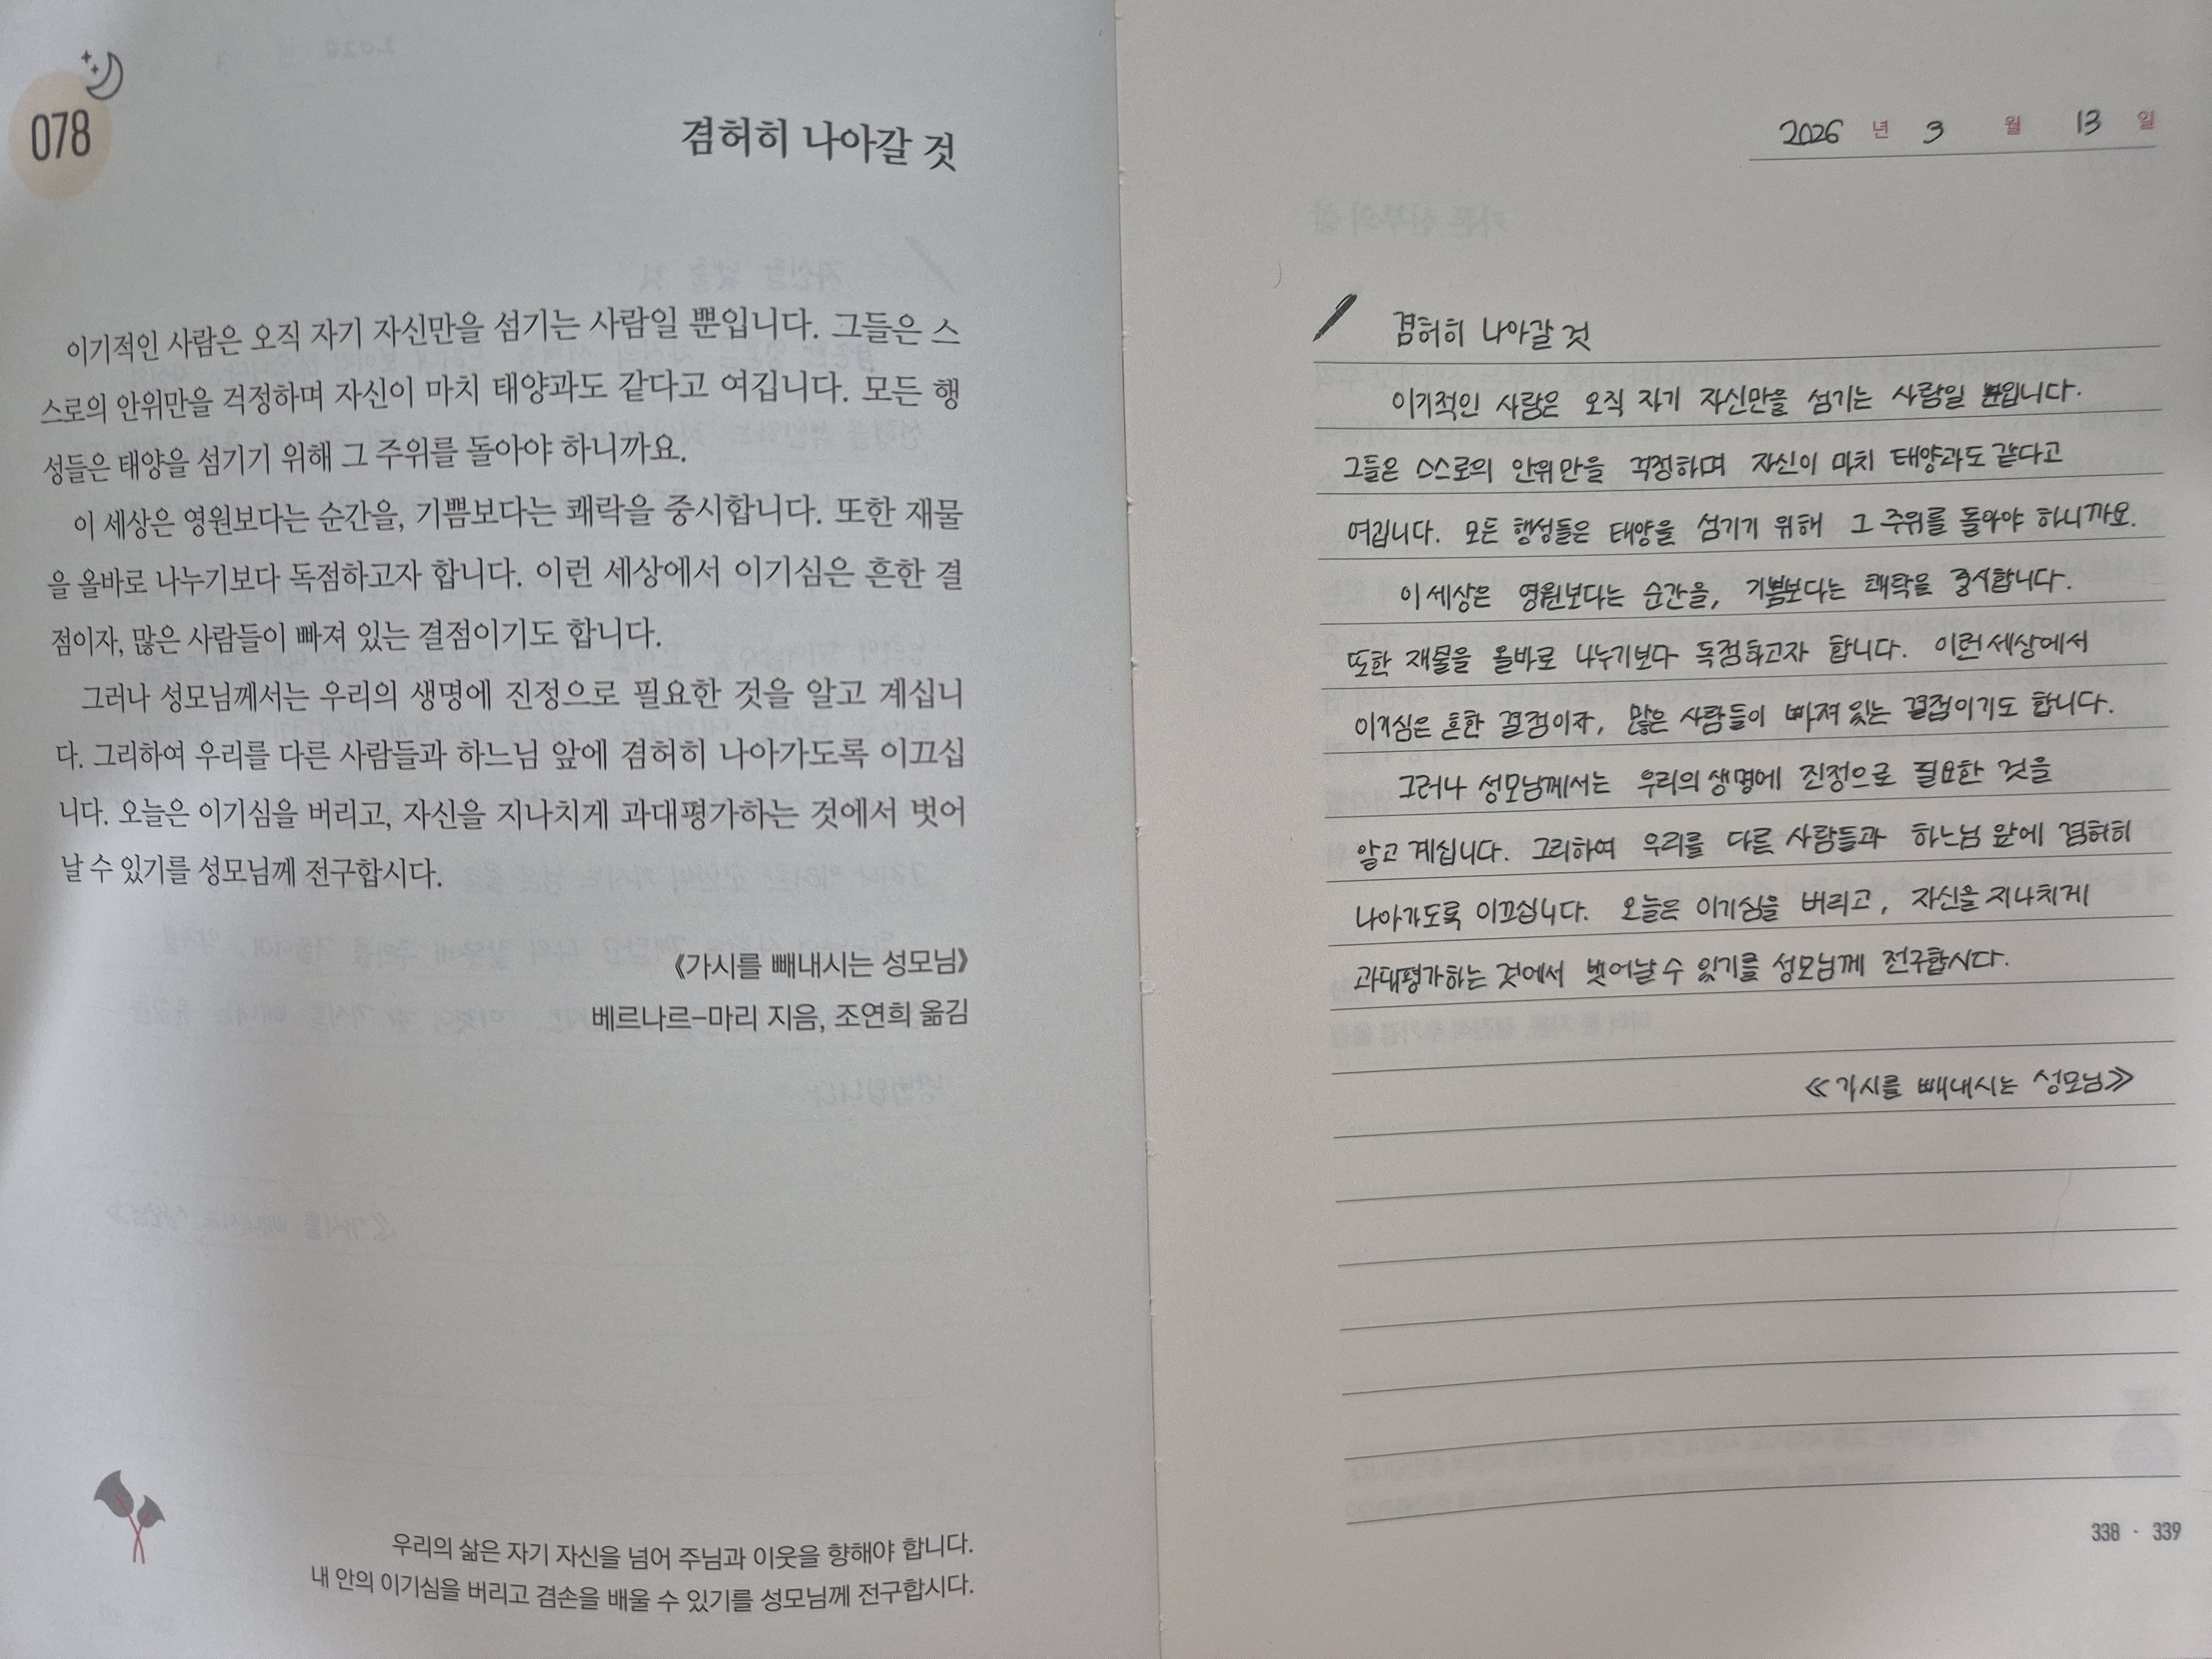 078
겸허히 나아갈 것
이기적인 사람은 오직 자기 자신만을 섬기는 사람일 뿐입니다. 그들은 스
스로의 안위만을 걱정하며 자신이 마치 태양과도 같다고 여깁니다. 모든 행
성들은 태양을 섬기기 위해 그 주위를 돌아야 하니까요.
이 세상은 영원보다는 순간을, 기쁨보다는 쾌락을 중시합니다. 또한 재물
을 올바로 나누기보다 독점하고자 합니다. 이런 세상에서 이기심은 흔한 결
점이자, 많은 사람들이 빠져 있는 결점이기도 합니다.
그러나 성모님께서는 우리의 생명에 진정으로 필요한 것을 알고 계십니
다. 그리하여 우리를 다른 사람들과 하느님 앞에 겸허히 나아가도록 이끄십
니다. 오늘은 이기심을 버리고, 자신을 지나치게 과대평가하는 것에서 벗어
날 수 있기를 성모님께 전구합시다.
《가시를 빼내시는 성모님》
베르나르-마리 지음, 조연희 옮김
우리의 삶은 자기 자신을 넘어 주님과 이웃을 향해야 합니다.
내 안의 이기심을 버리고 겸손을 배울 수 있기를 성모님께 전구합시다.
2026 년 3 월 13 일
겸허히 나아갈 것
이기적인 사람은 오직 자기 자신만을 섬기는 사람일 뿐입니다.
그들은 스스로의 안위만을 걱정하며 자신이 마치 태양과도 같다고
여깁니다. 모든 행성들은 태양을 섬기기 위해 그 주위를 돌아야 하니까요.
이 세상은 영원보다는 순간을, 기쁨보다는 쾌락을 중시합니다.
또한 재물을 올바로 나누기보다 독점하고자 합니다. 이런 세상에서
이기심은 흔한 결점이자, 많은 사람들이 빠져 있는 결점이기도 합니다.
그러나 성모님께서는 우리의 생명에 진정으로 필요한 것을
알고 계십니다. 그리하여 우리를 다른 사람들과 하느님 앞에 겸허히
나아가도록 이끄십니다. 오늘은 이기심을 버리고, 자신을 지나치게
과대평가하는 것에서 벗어날 수 있기를 성모님께 전구합시다.
≪가시를 빼내시는 성모님≫
338 · 339